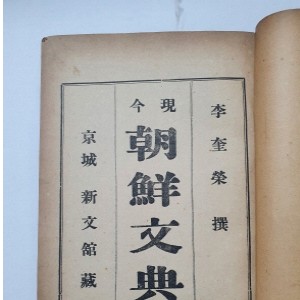 李奎榮 撰
現今
朝鮮文典
京城 新文館藏